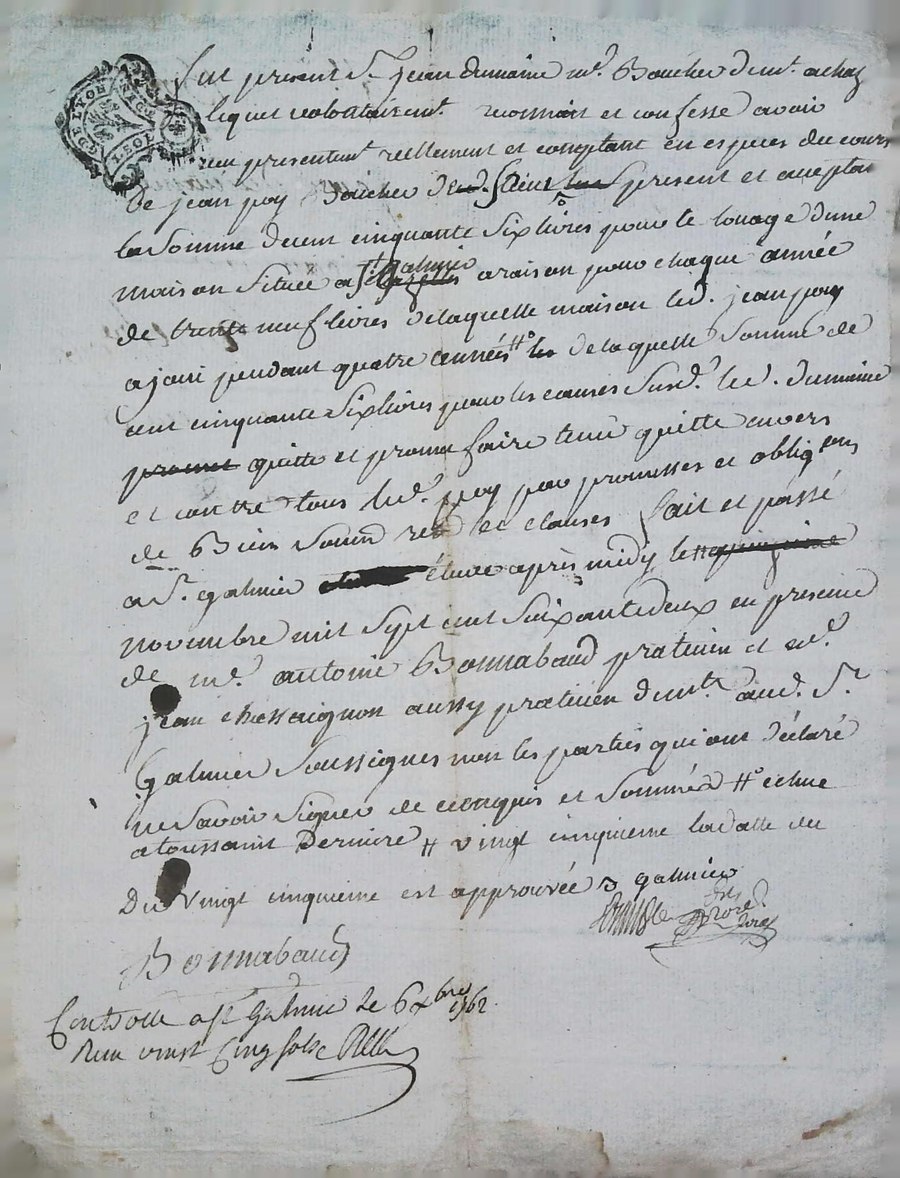 GDE LYON
DEUX SOLS
Fut present Sr. Jean dumaine md. Boucher demt. a chaz
lequel volontairemt. reconnait et confesse avoir
reçu presentemt. reellement et comptant en especes du cours
de jean poy Boucher present et acceptan
la Somme de cent cinquante Six livres pour le louage dune
maison Située a St. galmier a raison pour chaque année
de trente neuf livres de laquelle maison led. jean poy
a joui pendant quatre années #o de laquelle Somme de
cent cinquante Six livres pour les causes Susd. led. dumaine
promet quitte et promet faire tenir quitte envers
et contre tous led. poy par promesses et obligons
de Biens Soum ret et clauses fait et passé
a St. galmier étude après midy le #
novembre mil Sept cent Soixante deux en presence
de me. antoine Bonnabaud praticien et me.
jean chassaignon aussy praticien demts. aud. St.
Galmier Soussignés non les parties qui ont déclaré
ne Savoir Signer de ce enquis et Sommées #o echue
a toussaint Derniere # vingt cinquieme la datte du
Du vingt cinquieme est approuvée galmier
Bonnabaud
Controllé a St Galmier le 6 xbre 1762.
Reçu vingt Cinq sols